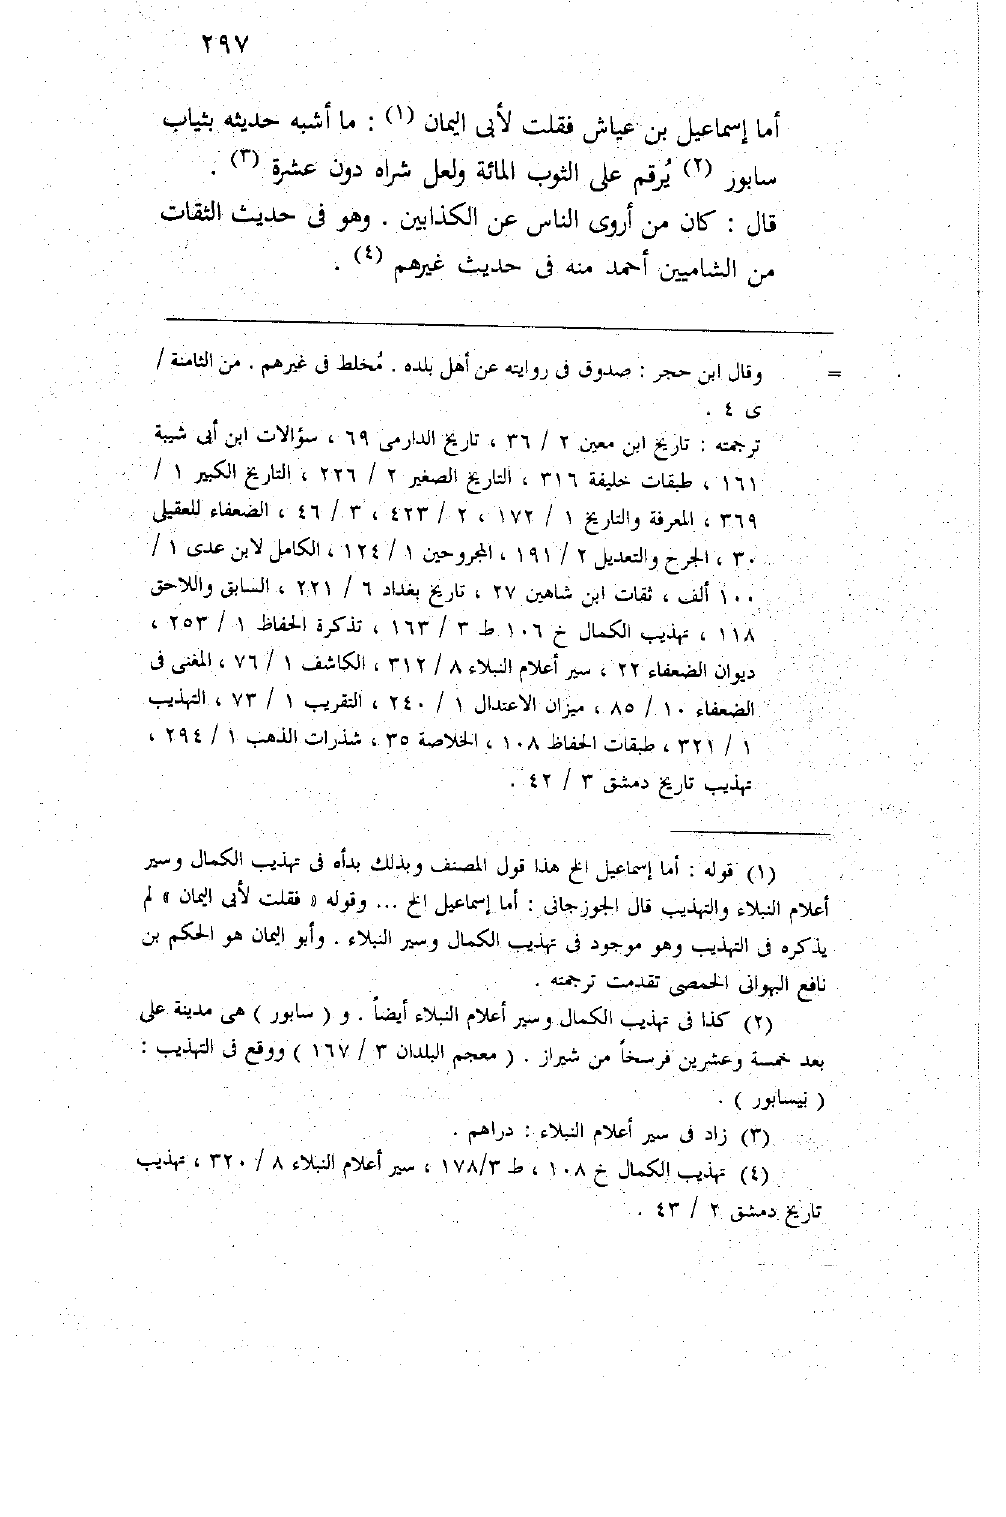 ٢٩٧
أما إسماعيل بن عياش فقلت لأبى اليمان (١) : ما أشبه حديثه بثياب
سابور (٢) يُرقم على الثوب المائة ولعل شراه دون عشرة (٣) .
قال : كان من أروى الناس عن الكذابين . وهو فى حديث الثقات
من الشاميين أحمد منه فى حديث غيرهم (٤) .
= وقال ابن حجر : صدوق فى روايته عن أهل بلده . مُخلط فى غيرهم . من الثامنة /
ى ٤ .
ترجمته : تاريخ ابن معين ٢ / ٣٦ ، تاريخ الدارمى ٦٩ ، سؤالات ابن أبى شيبة
١٦١ ، طبقات خليفة ٣١٦ ، التاريخ الصغير ٢ / ٢٢٦ ، التاريخ الكبير ١ /
٣٦٩ ، المعرفة والتاريخ ١ / ١٧٢ ، ٢ / ٤٢٣ ، ٣ / ٤٦ ، الضعفاء للعقيلى
٣٠ ، الجرح والتعديل ٢ / ١٩١ ، المجروحين ١ / ١٢٤ ، الكامل لابن عدى ١ /
١٠٠ ألف ، ثقات ابن شاهين ٢٧ ، تاريخ بغداد ٦ / ٢٢١ ، السابق واللاحق
١١٨ ، تهذيب الكمال خ ١٠٦ ط ٣ / ١٦٣ ، تذكرة الحفاظ ١ / ٢٥٣ ،
ديوان الضعفاء ٢٢ ، سير أعلام النبلاء ٨ / ٣١٢ ، الكاشف ١ / ٧٦ ، المغنى فى
الضعفاء ١٠ / ٨٥ ، ميزان الاعتدال ١ / ٢٤٠ ، التقريب ١ / ٧٣ ، التهذيب
١ / ٣٢١ ، طبقات الحفاظ ١٠٨ ، الخلاصة ٣٥ ، شذرات الذهب ١ / ٢٩٤ ،
تهذيب تاريخ دمشق ٣ / ٤٢ .
(١) قوله : أما إسماعيل الخ هذا قول المصنف وبذلك بدأه فى تهذيب الكمال وسير
أعلام النبلاء والتهذيب قال الجوزجانى : أما إسماعيل الخ ... وقوله « فقلت لأبى اليمان » لم
يذكره فى التهذيب وهو موجود فى تهذيب الكمال وسير النبلاء . وأبو اليمان هو الحكم بن
نافع البهوانى الحمصى تقدمت ترجمته .
(٢) كذا فى تهذيب الكمال وسير أعلام النبلاء أيضاً . و ( سابور ) هى مدينة على
بعد خمسة وعشرين فرسخاً من شيراز . ( معجم البلدان ٣ / ١٦٧ ) ووقع فى التهذيب :
( نيسابور ) .
(٣) زاد فى سير أعلام النبلاء : دراهم .
(٤) تهذيب الكمال خ ١٠٨ ، ط ١٧٨/٣ ، سير أعلام النبلاء ٨ / ٣٢٠ ، تهذيب
تاريخ دمشق ٢ / ٤٣ .